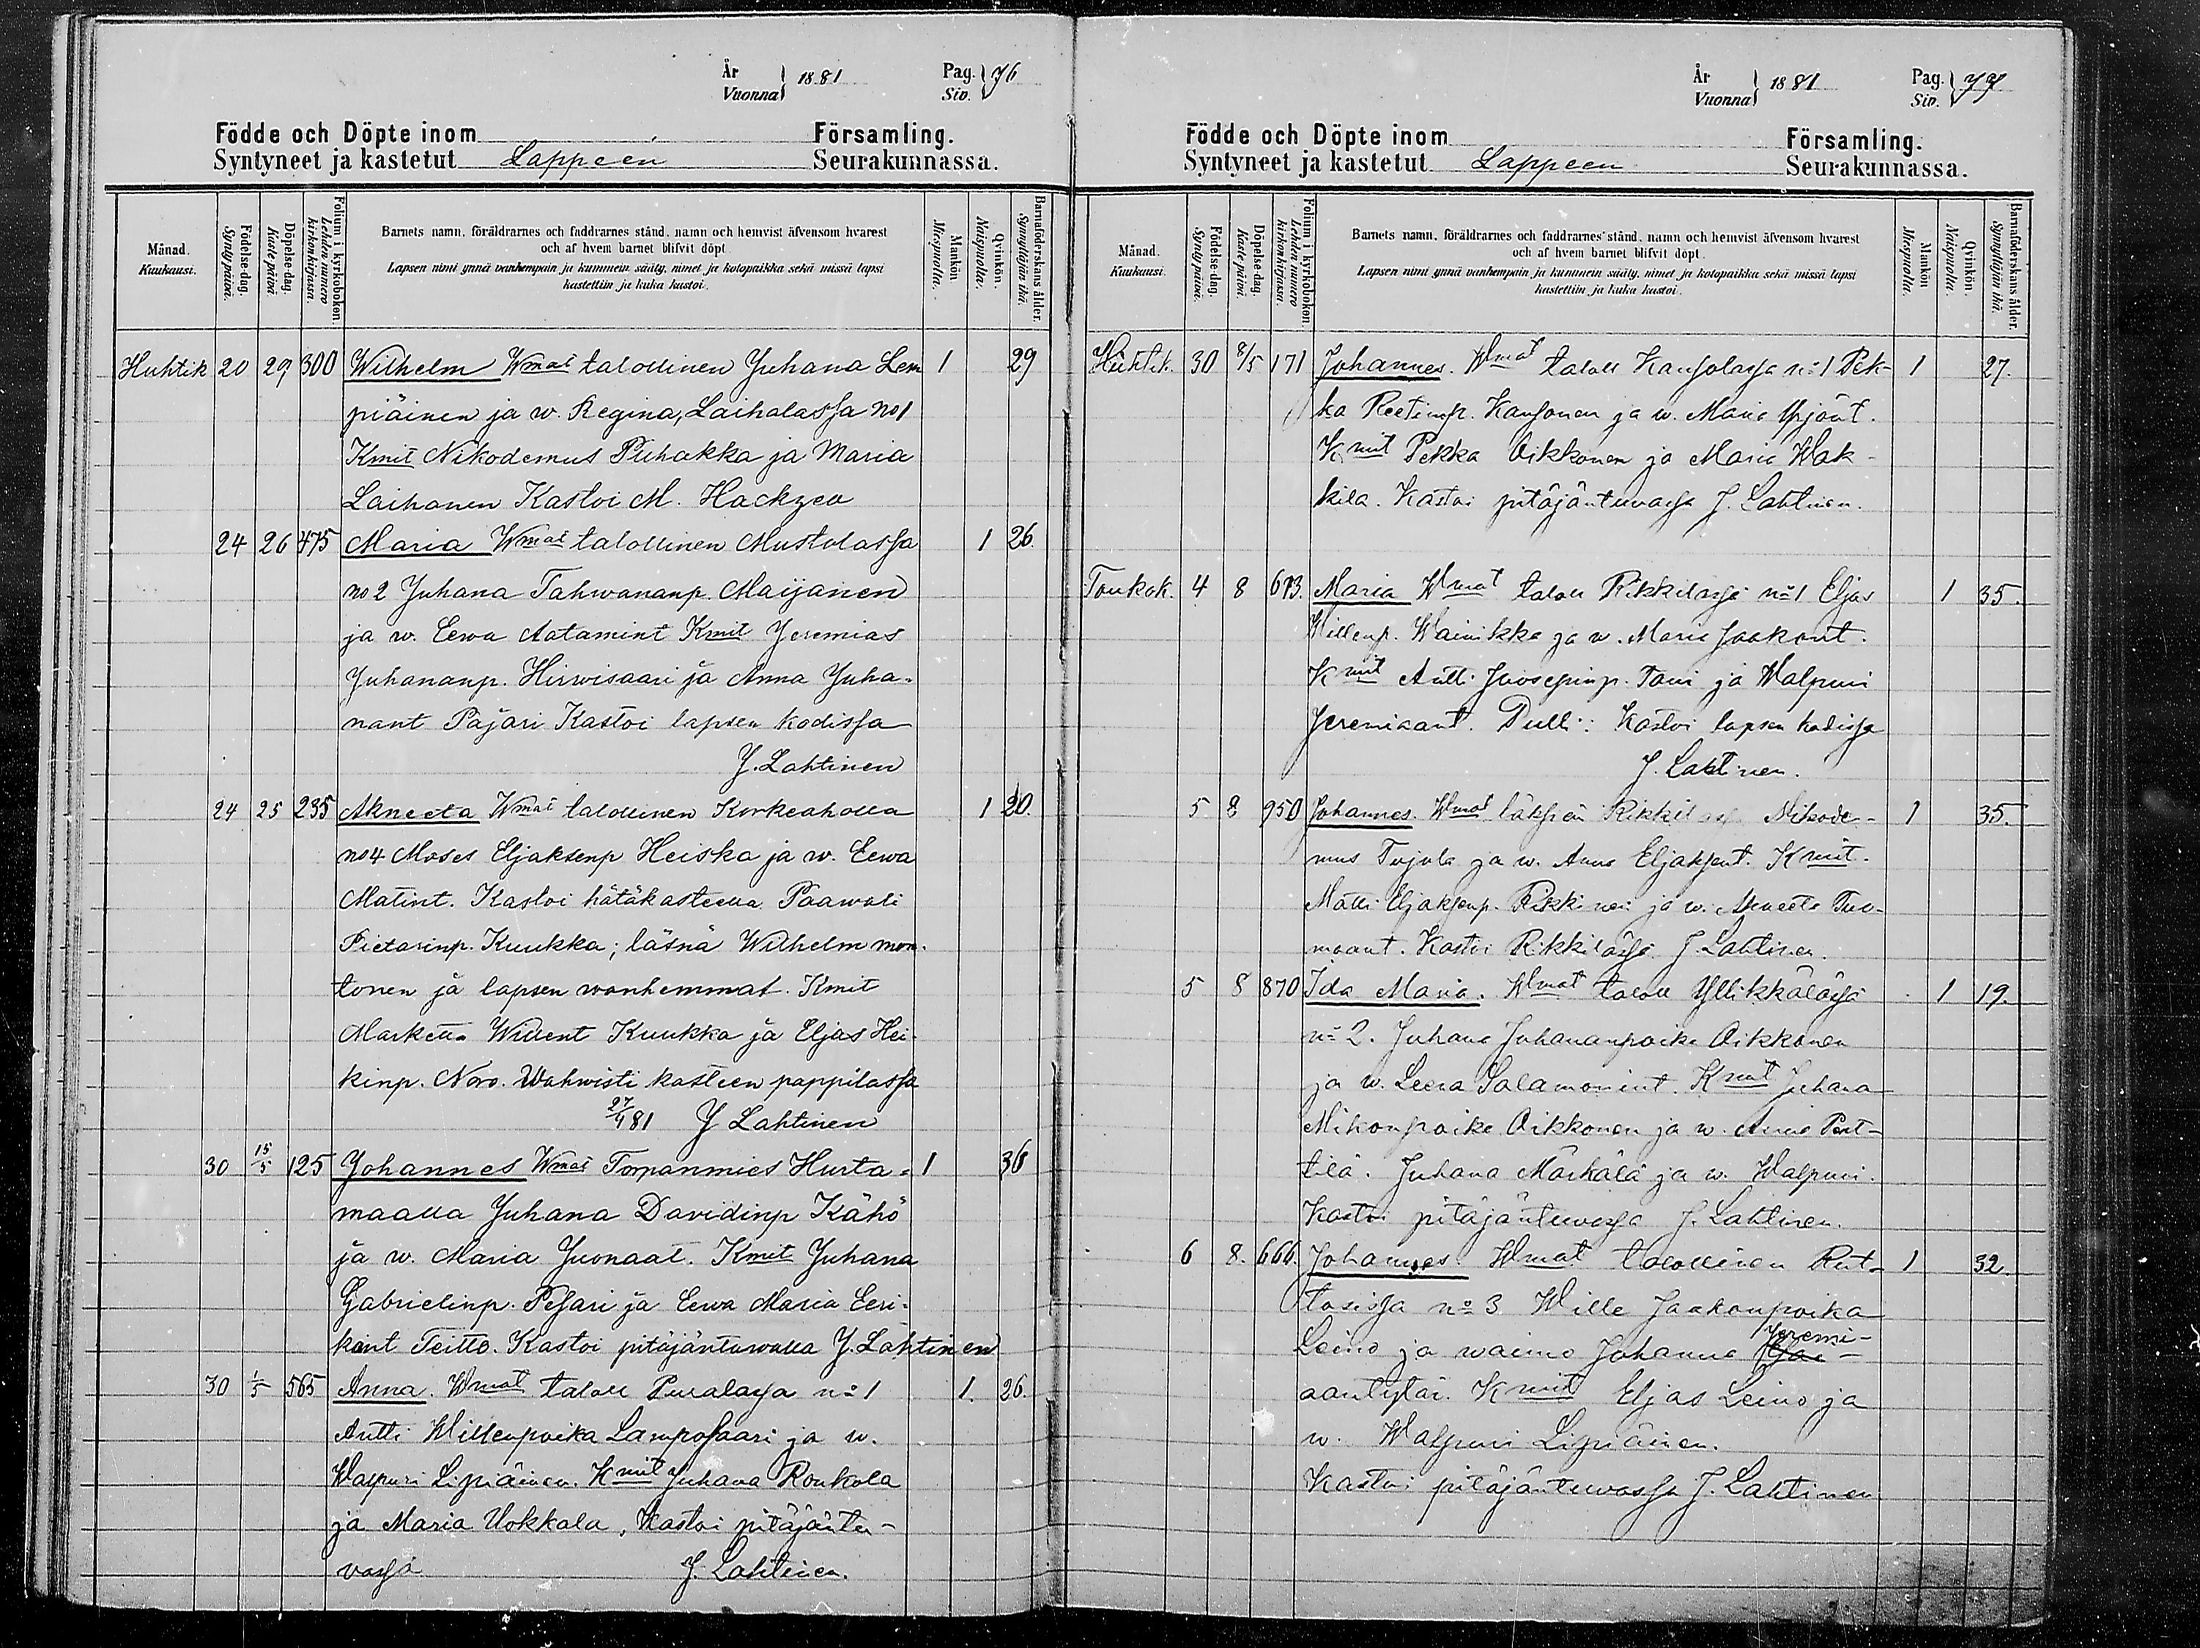 År
Vuonna } 1881 Pag. Siv. } 76
Födde och Döpte inom Församling.
Syntyneet ja kastetut Lappeen Seurakunnassa.
Månad. Kuukausi. Födelse-dag. Synty päivä. Döpelse-dag. Kaste päivä. Folium i kyrkoboken. Lehden numero kirkonkirjassa. Barnets namn, föräldrarnes och faddrarnes stånd, namn och hemvist äfvensom hvarest och af hvem barnet blifvit döpt. Lapsen nimi ynnä vanhempain ja kummein sääty, nimet ja kotopaikka sekä missä lapsi kastettiin ja kuka kastoi. Mankön. Miespuolta. Qvinkön. Naispuolta. Barnaföderskans ålder. Synnyttäjän ikä.
Huhtik 20 29 300 Wilhelm Wmat talollinen Juhana Lem 1 29
piäinen ja w. Regina, Laihalassa no 1
Kmit Nikodemus Puhakka ja Maria
Laihanen Kastoi M. Hackzell
24 26 475 Maria Wmat talollinen Mustolassa 1 26.
no 2 Juhana Tahwananp. Maijanen
ja w. Eewa Aatamint Kmit Jeremias
Juhananp. Hirwisaari ja Anna Juha-
nant Pajari Kastoi lapsen kodissa
J. Lahtinen
24 25 235 Akneeta Wmat talollinen Korkeaholla 1 20.
no 4 Moses Eljaksenp Heiska ja w. Eewa
Matint. Kastoi hätäkasteella Paawali
Pietarinp. Kuukka; läsnä Wilhelm mon-
tonen ja lapsen wanhemmat. Kmit
Marketta Willent Kuukka ja Eljas Hei-
kinp. Noro. Wahwisti kasteen pappilassa
27/4 81 J Lahtinen
30 15/5 125 Johannes Wmat Torpanmies Hurta- 1 36
maalla Juhana Davidinp Kähö
ja w. Maria Juonaat. Kmit Juhana
Gabrielinp. Pesari ja Eewa Maria Eeri-
kint Teitto. Kastoi pitäjäntuwalla J. Lahtinen
30 1/5 565 Anna. Wmat taloll Puralassa no 1 1. 26.
Antti Willenpoika Lamposaari ja w.
Walpuri Lipiäinen. Kmit Juhana Ronkola
ja Maria Uokkala, Kastoi pitäjäntu-
wassa J. Lahtinen.
År
Vuonna } 1881 Pag. Siv. } 77
Födde och Döpte inom Församling.
Syntyneet ja kastetut Lappeen Seurakunnassa.
Månad. Kuukausi. Födelse-dag. Synty päivä. Döpelse-dag. Kaste päivä. Folium i kyrkoboken. Lehden numero kirkonkirjassa. Barnets namn, föräldrarnes och faddrarnes stånd, namn och hemvist äfvensom hvarest och af hvem barnet blifvit döpt. Lapsen nimi ynnä vanhempain ja kummein sääty, nimet ja kotopaikka sekä missä lapsi kastettiin ja kuka kastoi. Mankön Miespuolta. Qvinkön. Naispuolta. Barnaföderskans ålder. Synnyttäjän ikä.
Huhtik. 30 8/5 171 Johannes. Wmat taloll Kansolassa no 1 Pek- 1 27.
ka Reetinp. Kansonen ja w. Maria Yrjönt.
Kmit Pekka Oikkonen ja Maria Wak-
kila. Kastoi pitäjäntuwassa J. Lahtinen.
Toukok. 4 8 613. Maria Wmat taloll Rikkilässä no 1 Eljas 1 35.
Willenp. Wainikka ja w. Maria Jaakont.
Kmit Antti Juosepinp. Tani ja Walpuri
Jeremiaant. Pulli: Kastoi lapsen kodissa
J. Lahtinen.
5 8 950 Johannes. Wmat läksiäi Rikkilässä Nikode- 1 35.
mus Tujula ja w. Anna Eljaksent. Kmit.
Matti Eljaksenp. Rikkinen ja w. Akneeta Tuo-
maant. Kastoi Rikkilässä J. Lahtinen.
5 8 870 Ida Maria. Wmat taloll Yllikkälässä 1 19.
no 2. Juhana Juhananpoika Oikkonen
ja w. Leena Salamonint. Kmit Juhana
Mikonpoika Oikkonen ja w. Anna Pent-
tilä. Juhana Märkälä ja w. Walpuri.
Kastoi pitäjäntuwassa J. Lahtinen.
6 8. 666. Johannes. Wmat talollinen Rut- 1 32.
tosissa no 3 Wille Jaakonpoika
Leino ja waimo Johanna Jeremi-
aantytär. Kmit Eljas Leino ja
w. Walpuri Lipiäinen.
Kastoi pitäjäntuwassa J. Lahtinen